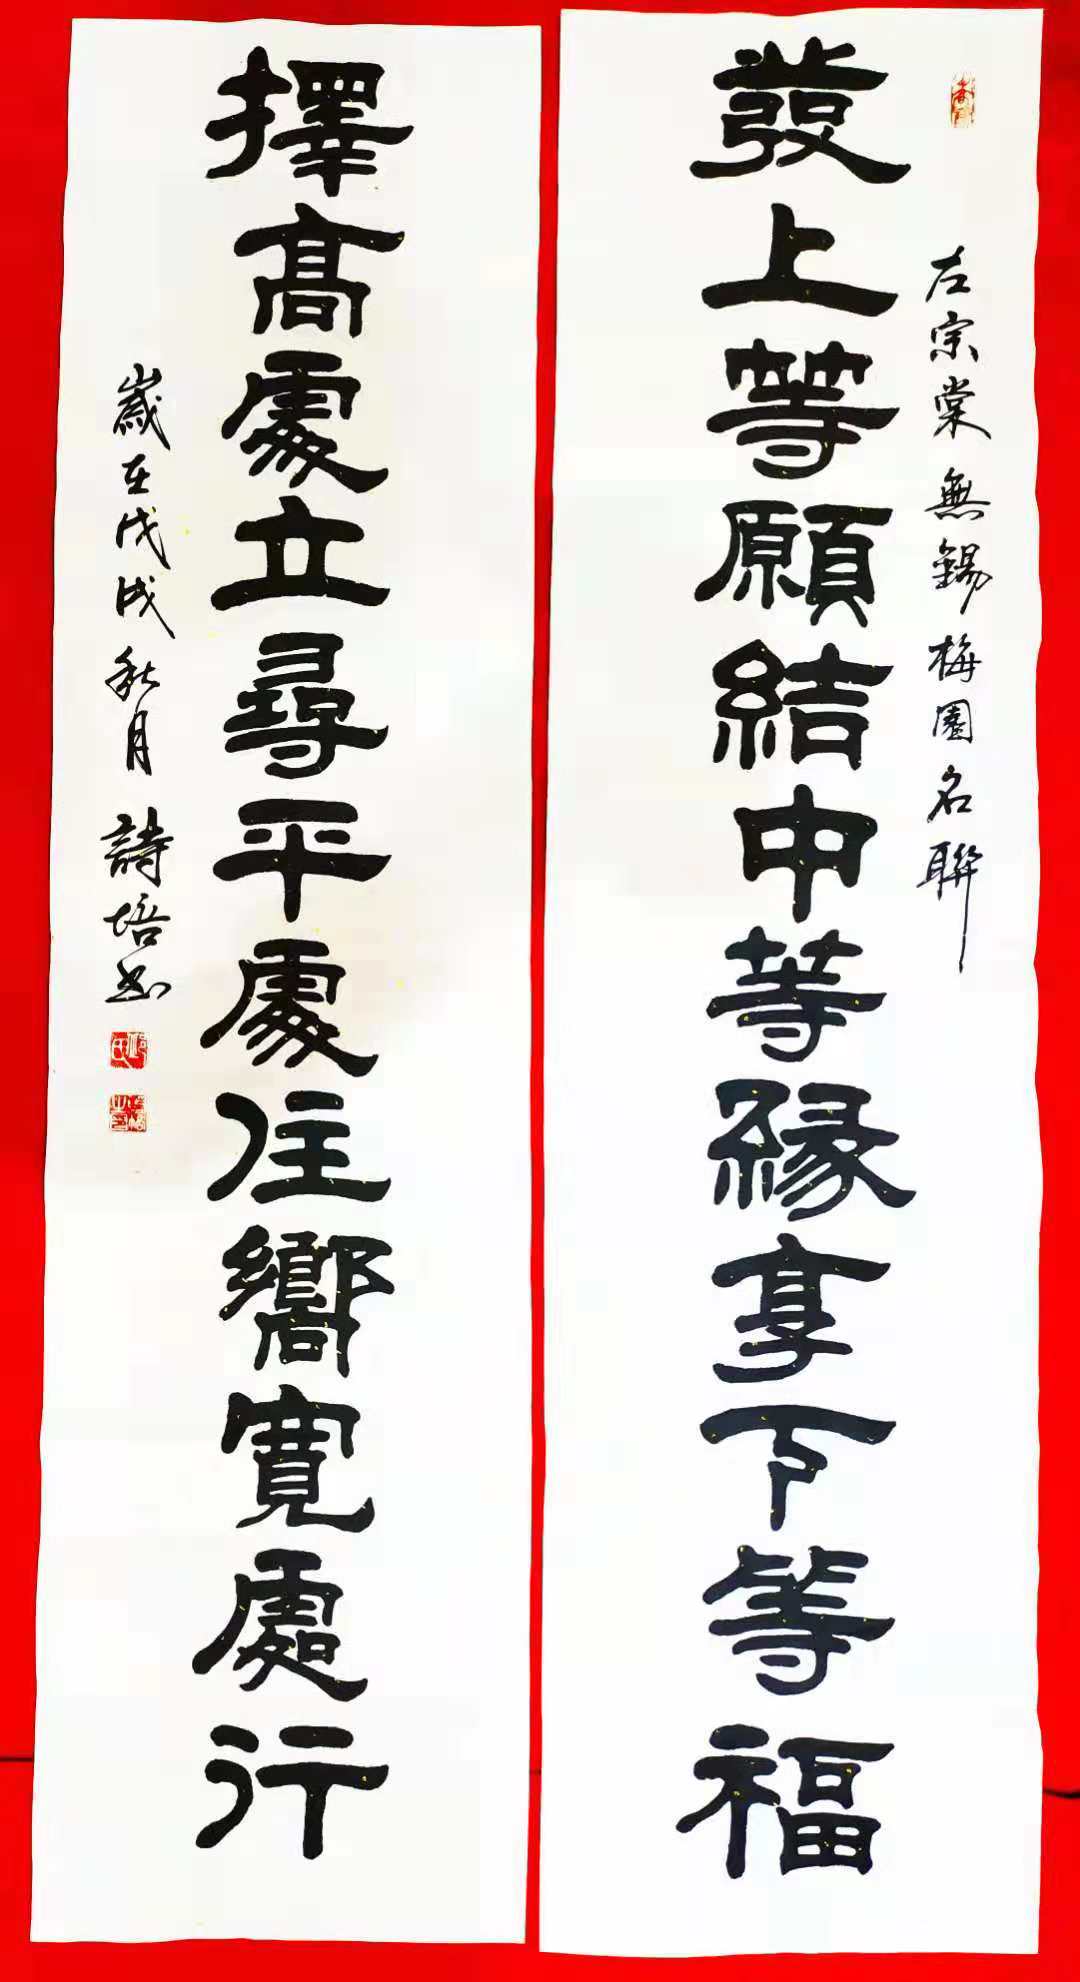 左宗棠無錫梅園名聯
發上等願結中等緣享下等福
擇高處立尋平處住嚮寬處行
歲在戊戌秋月詩培书